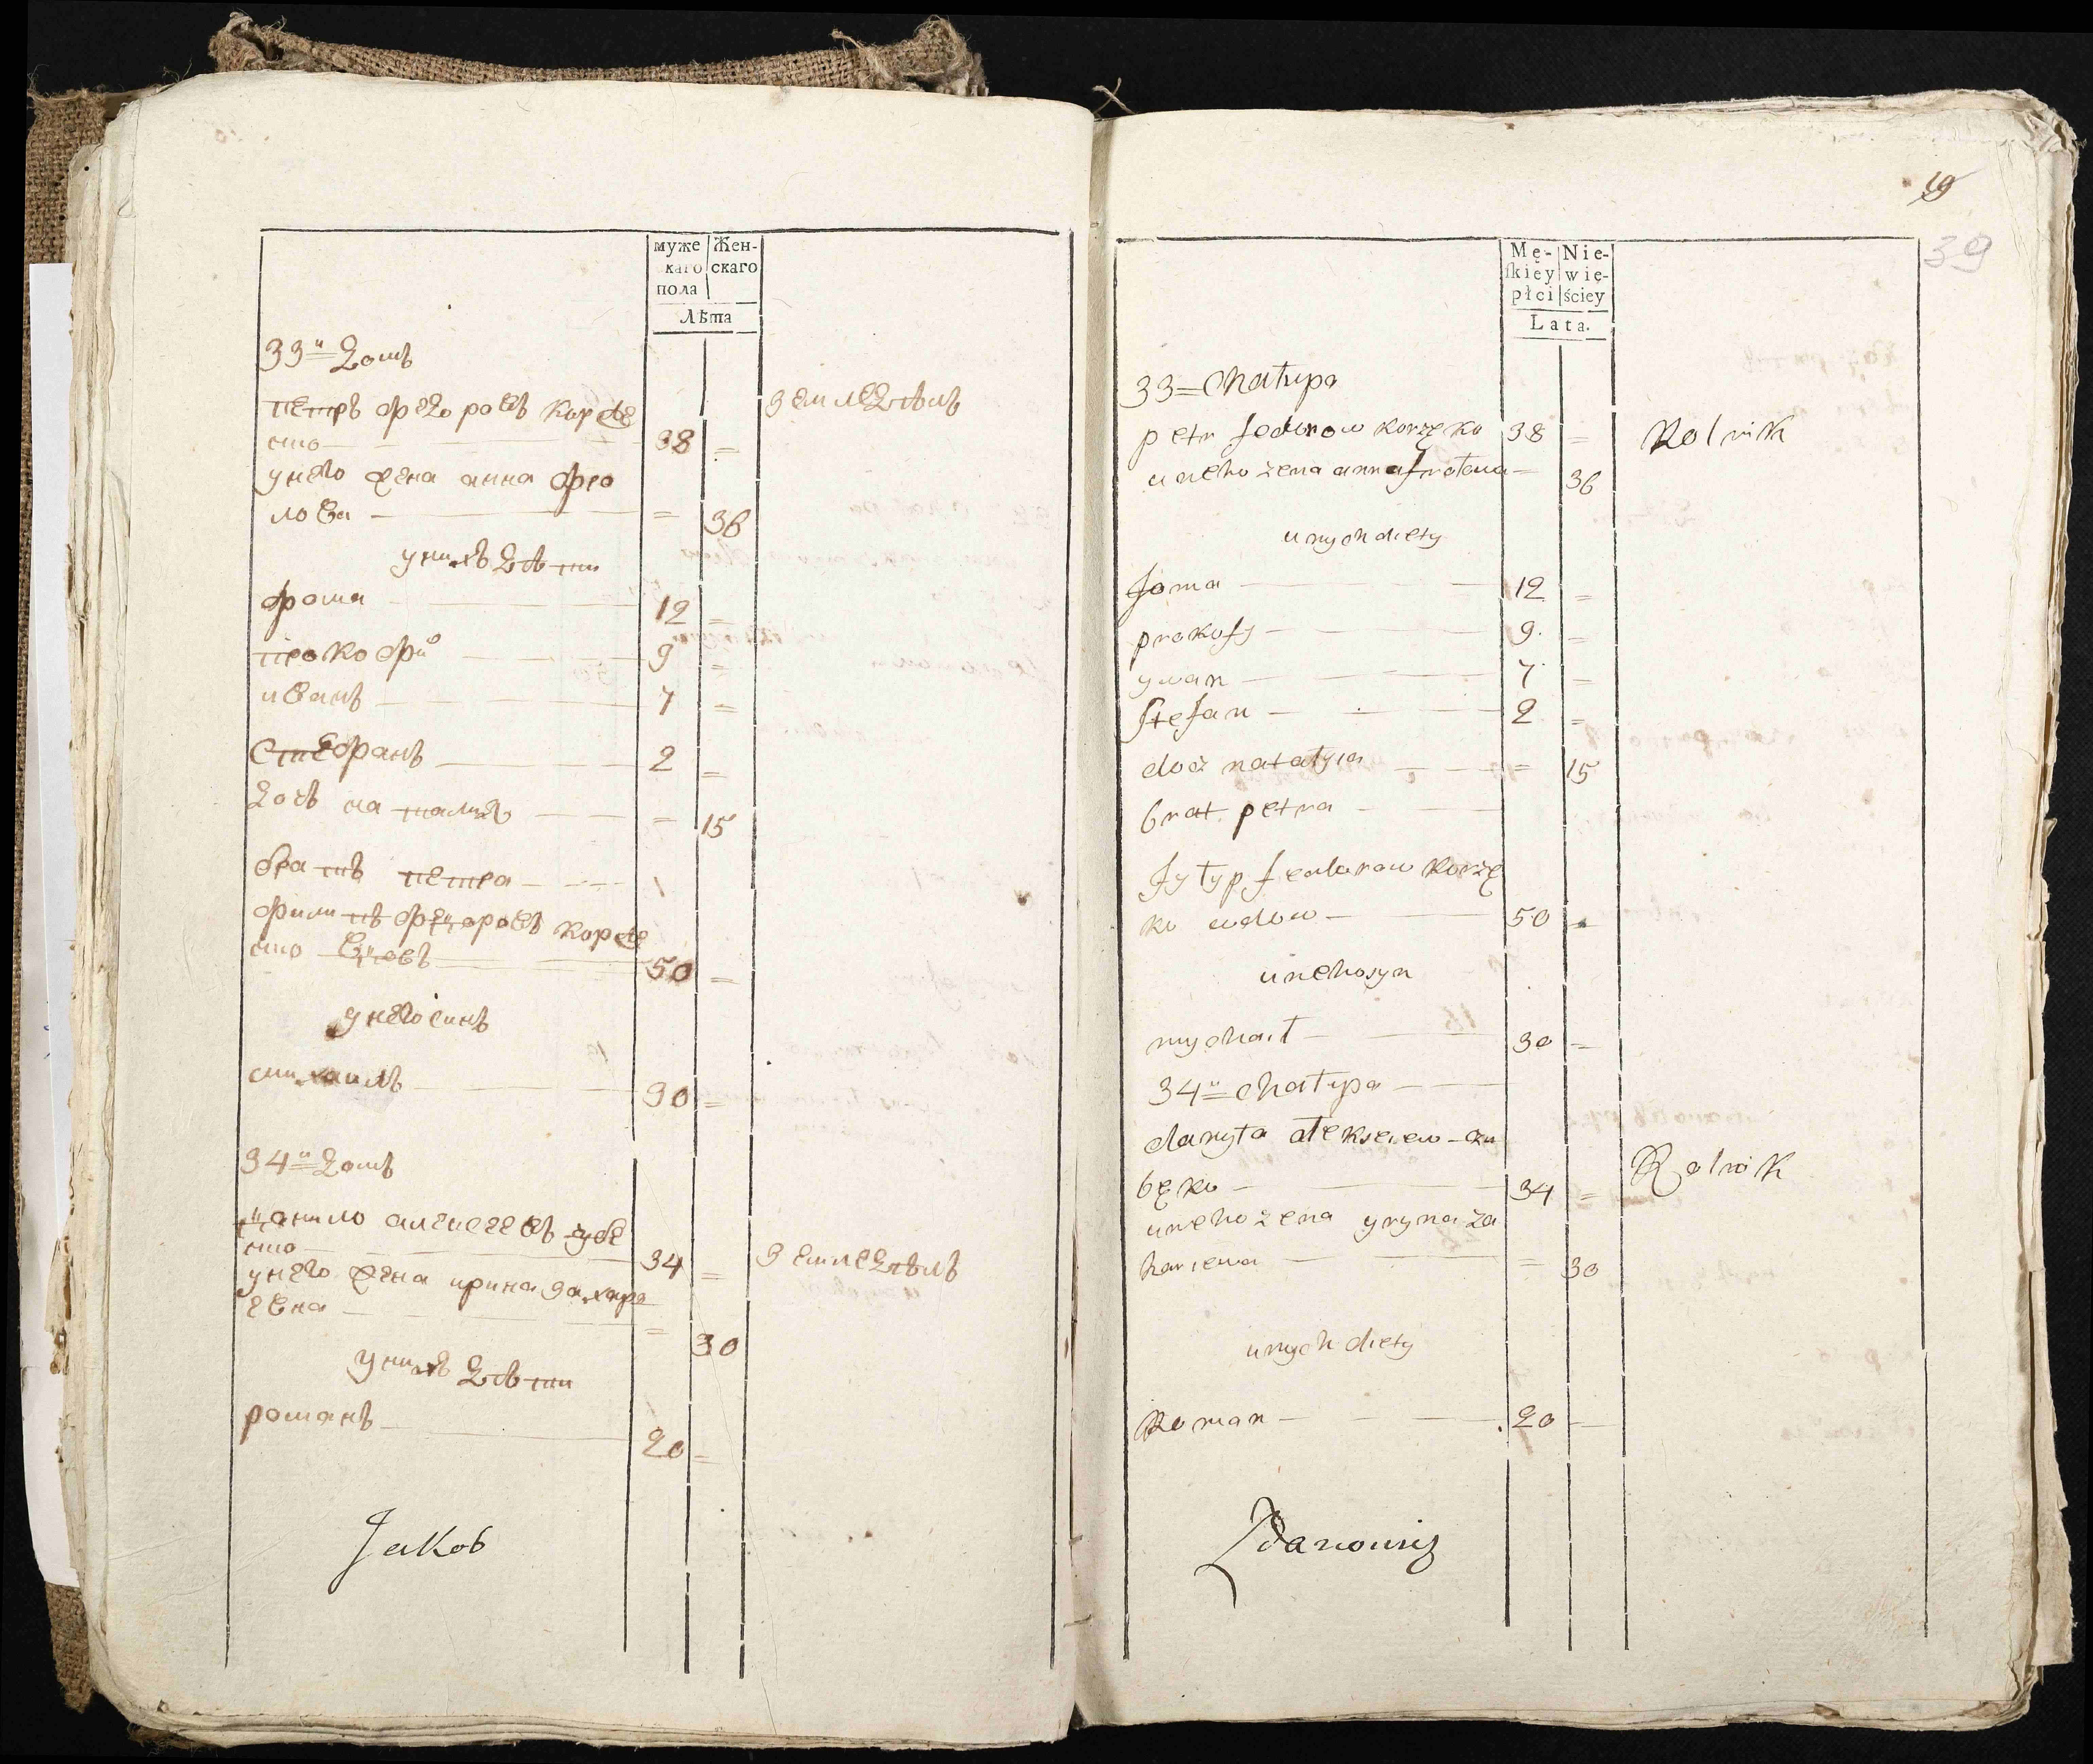 муже
каго
пола
Жен-
скаго
Лѣта
33й домъ
петръ федоровъ корже
мо 38 =
унего жена анна фро
лова = 36
унихъ дѣти
фома 12 =
прокофий 9 =
иванъ 7 =
Стефанъ 2 =
дочь наталия = 15
братъ петра
филипъ федоровъ корже
мо вдовъ 50 =
унего синъ
михаилъ 30 =
34й домъ
данило алексеевъ зубе
мо 34 =
унего жена ирина захаре
евна = 30
унихъ дѣти
романъ 20 =
земледѣлъ
земледѣлъ
Jakob
19
39
Mę-
skiey
płci
Nie-
wie-
ściey
Lata.
33 = Chałupa
petr fedorow korzęko 38 =
uneho żena anna frołowa = 36
unych diety
foma 12 =
prokofy 9 =
ywan 7 =
stefan 2 =
docz natałyia = 15
brat petra
fyłyp feodorow korzę
ko wdow 50 =
uneho syn
mychaił 30 =
34u = chałupa
danyła ałeksiew zu
bęko 34 =
uneho żena yryna za
hariewa = 30
unych diety
Roman 20
Rolnik
Rolnik
Zdanowicz